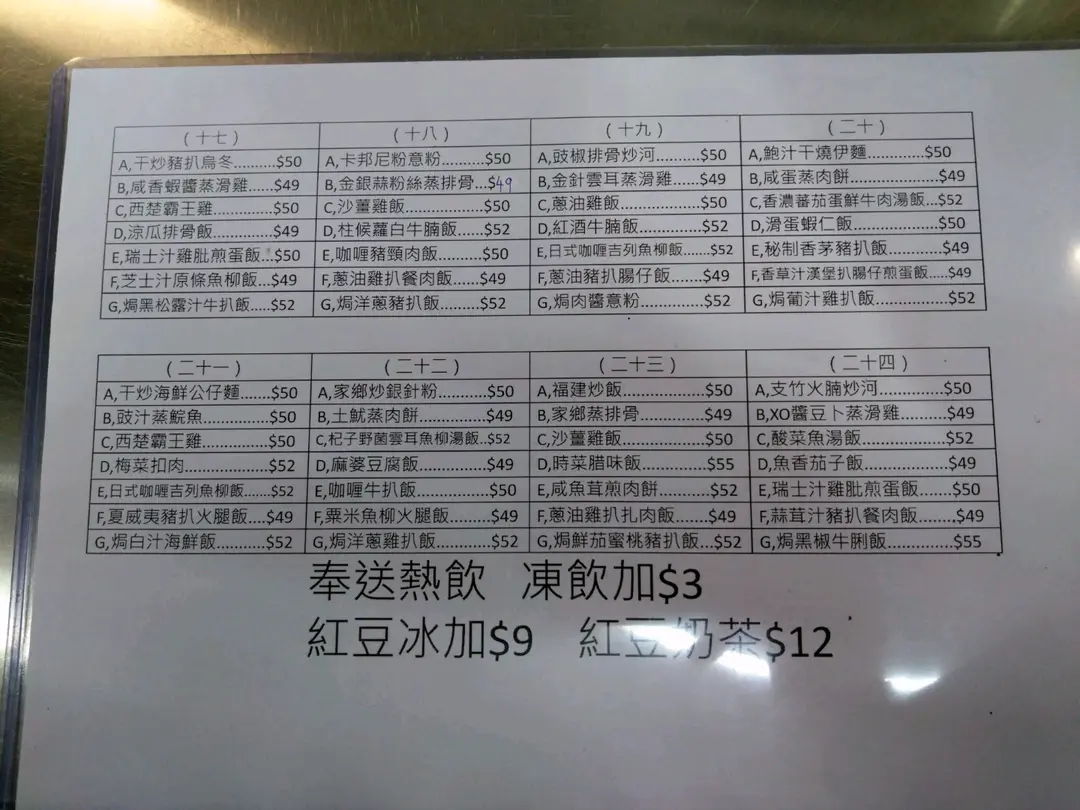 (十七)
A,干炒豬扒烏冬.........$50
B,咸香蝦醬蒸滑雞.....$49
C,西楚霸王雞.............$50
D,涼瓜排骨飯.............$49
E,瑞士汁雞肶煎蛋飯..$50
F,芝士汁原條魚柳飯...$49
G,焗黑松露汁牛扒飯.....$52
(十八)
A,卡邦尼粉意粉.........$50
B,金銀蒜粉絲蒸排骨...$49
C,沙薑雞飯................$50
D,柱候蘿白牛腩飯......$52
E,咖喱豬頸肉飯.........$50
F,蔥油雞扒餐肉飯......$49
G,焗洋蔥豬扒飯.........$52
(十九)
A,豉椒排骨炒河.........$50
B,金針雲耳蒸滑雞.....$49
C,蔥油雞飯................$50
D,紅酒牛腩飯.............$52
E,日式咖喱吉列魚柳飯.......$52
F,蔥油豬扒腸仔飯......$49
G,焗肉醬意粉.............$52
(二十)
A,鮑汁干燒伊麵............$50
B,咸蛋蒸肉餅................$49
C,香濃蕃茄蛋鮮牛肉湯飯...$52
D,滑蛋蝦仁飯................$50
E,秘制香茅豬扒飯.........$49
F,香草汁漢堡扒腸仔煎蛋飯.....$49
G,焗葡汁雞扒飯............$52
(二十一)
A,干炒海鮮公仔麵......$50
B,豉汁蒸鯇魚.............$50
C,西楚霸王雞.............$50
D,梅菜扣肉................$52
E,日式咖喱吉列魚柳飯.......$52
F,夏威夷豬扒火腿飯....$49
G,焗白汁海鮮飯.........$52
(二十二)
A,家鄉炒銀針粉.........$50
B,土魷蒸肉餅.............$49
C,杞子野菌雲耳魚柳湯飯..$52
D,麻婆豆腐飯.............$49
E,咖喱牛扒飯.............$50
F,粟米魚柳火腿飯.........$49
G,焗洋蔥雞扒飯...........$52
(二十三)
A,福建炒飯................$50
B,家鄉蒸排骨.............$49
C,沙薑雞飯................$50
D,時菜腊味飯.............$55
E,咸魚茸煎肉餅.........$52
F,蔥油雞扒扎肉飯......$49
G,焗鮮茄蜜桃豬扒飯...$52
(二十四)
A,支竹火腩炒河............$50
B,XO醬豆卜蒸滑雞.........$49
C,酸菜魚湯飯................$52
D,魚香茄子飯................$49
E,瑞士汁雞肶煎蛋飯......$50
F,蒜茸汁豬扒餐肉飯......$49
G,焗黑椒牛脷飯............$55
奉送熱飲 凍飲加$3
紅豆冰加$9 紅豆奶茶$12